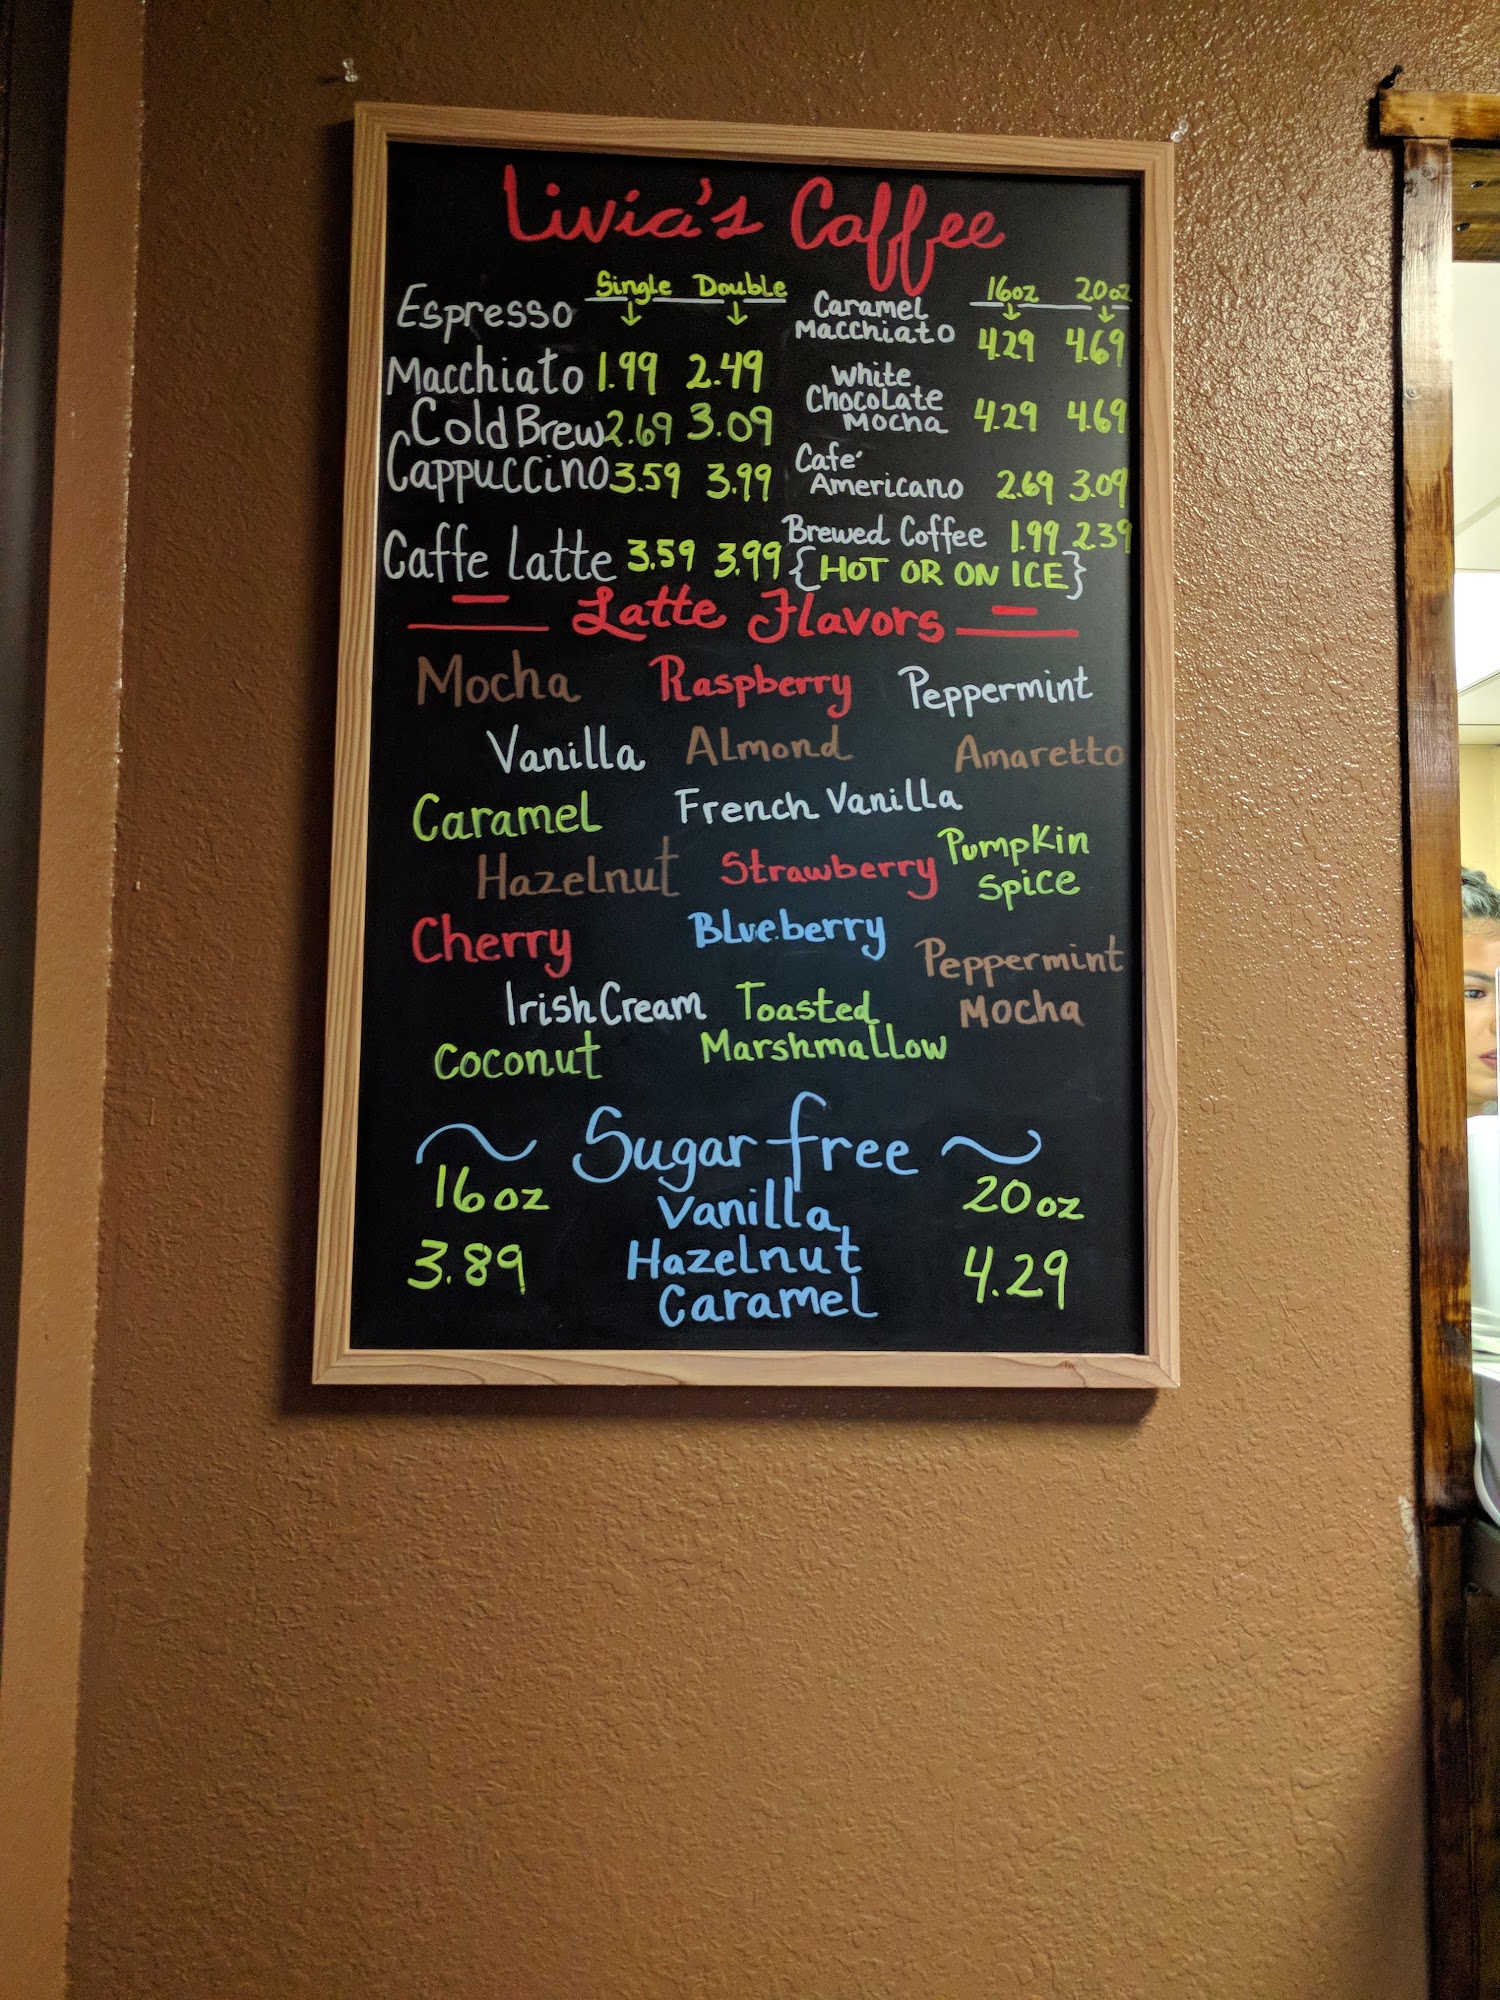 Livia's Coffee
Single Double
Espresso
Macchiato 1.99 2.49
Cold Brew 2.69 3.09
Cappuccino 3.59 3.99
Caffe Latte 3.59 3.99
16oz 20oz
Caramel
Macchiato 4.29 4.69
White
Chocolate
Mocha 4.29 4.69
Cafe'
Americano 2.69 3.09
Brewed Coffee 1.99 2.39
{HOT OR ON ICE}
Latte Flavors
Mocha Raspberry Peppermint
Vanilla Almond Amaretto
Caramel French Vanilla
Hazelnut Strawberry Pumpkin
Spice
Cherry Blueberry Peppermint
Mocha
Irish Cream Toasted
Marshmallow
Coconut
Sugar free
16oz Vanilla, 20oz
3.89 Hazelnut 4.29
Caramel